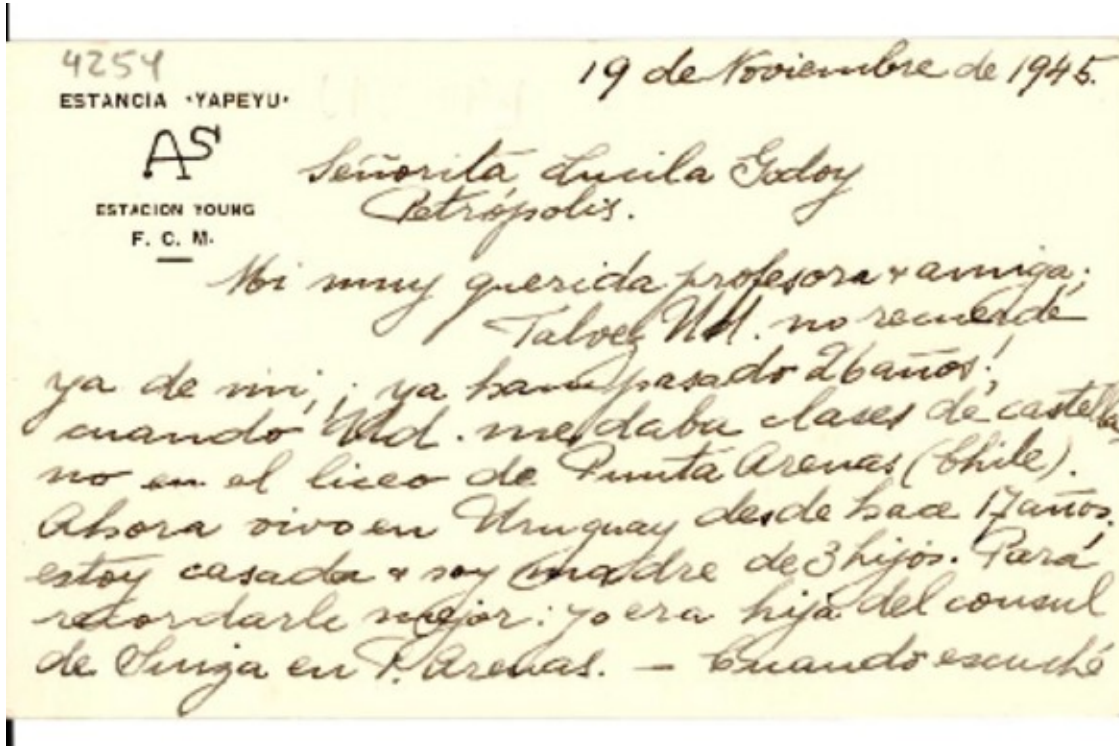 4254
19 de Noviembre de 1945.
ESTANCIA "YAPEYU"
AS
ESTACION YOUNG
F. C. M.
Señorita Lucila Godoy
Petrópolis.
Mi muy querida profesora & amiga;
Talvez Ud. no recuerde
ya de mi, ¡ya han pasado 26 años!
cuando Ud. me daba clases de castella
no en el liceo de Punta Arenas (Chile).
Ahora vivo en Uruguay desde hace 17 años,
estoy casada & soy madre de 3 hijos. Para
recordarle mejor: yo era hija del consul
de Suiza en P. Arenas. — Cuando escuché